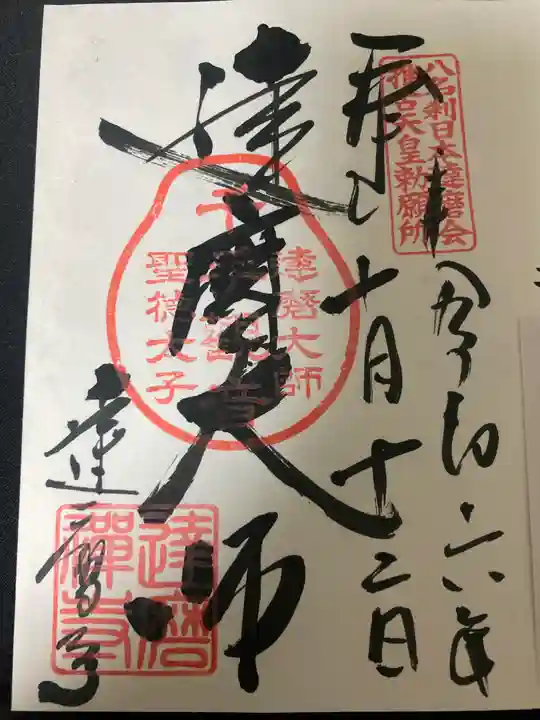 八名刹日本達磨会
推古天皇勅願所
令和六年
奉拝 十月十二日
達磨大師
達磨大師
千手観音
聖徳太子
達磨寺
達磨
禅寺